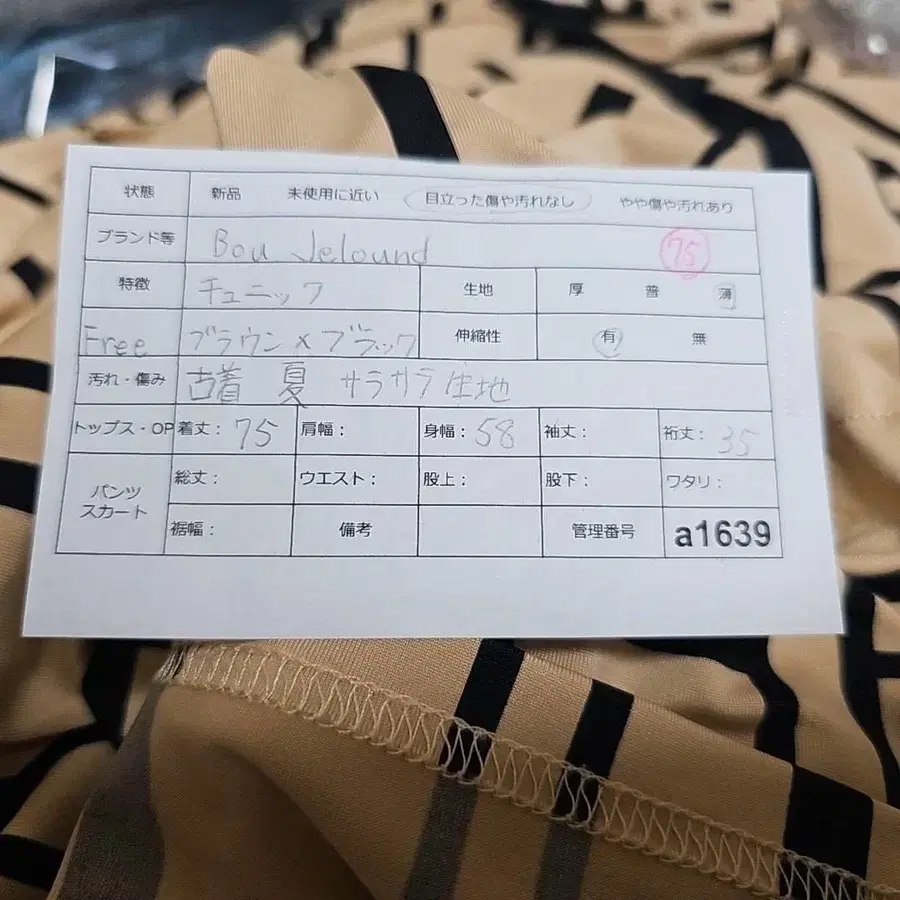 状態 新品 未使用に近い 目立った傷や汚れなし やや傷や汚れあり
ブランド等 Bou Jelound 75
特徴 チュニック 生地 厚 普 薄
Free ブラウン×ブラック 伸縮性 有 無
汚れ・傷み 古着 夏 サラサラ生地
トップス・OP 着丈： 75 肩幅： 身幅： 58 袖丈： 裄丈： 35
パンツ 総丈： ウエスト： 股上： 股下： ワタリ：
スカート 裾幅： 備考 管理番号 a1639